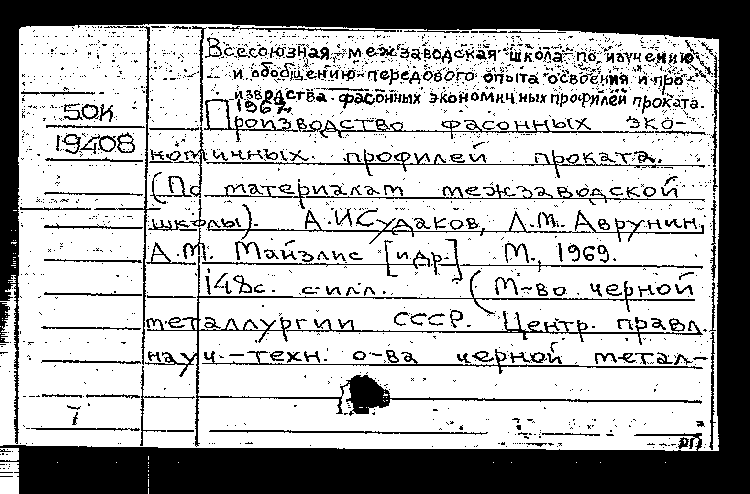 Всесоюзная межзаводская школа по изучению
и обобщению передового опыта освоения и про-
изводства фасонных экономичных профилей проката.
1967.
50К
19408
Производство фасонных эко-
номичных профилей проката.
(По материалам межзаводской
школы). А.И Судаков, Л.М. Аврунин,
А.М. Майзлис [и др.] М., 1969.
148с. с илл. (М-во черной
металлургии СССР. Центр. правл.
науч.-техн. о-ва черной метал-
7
РП